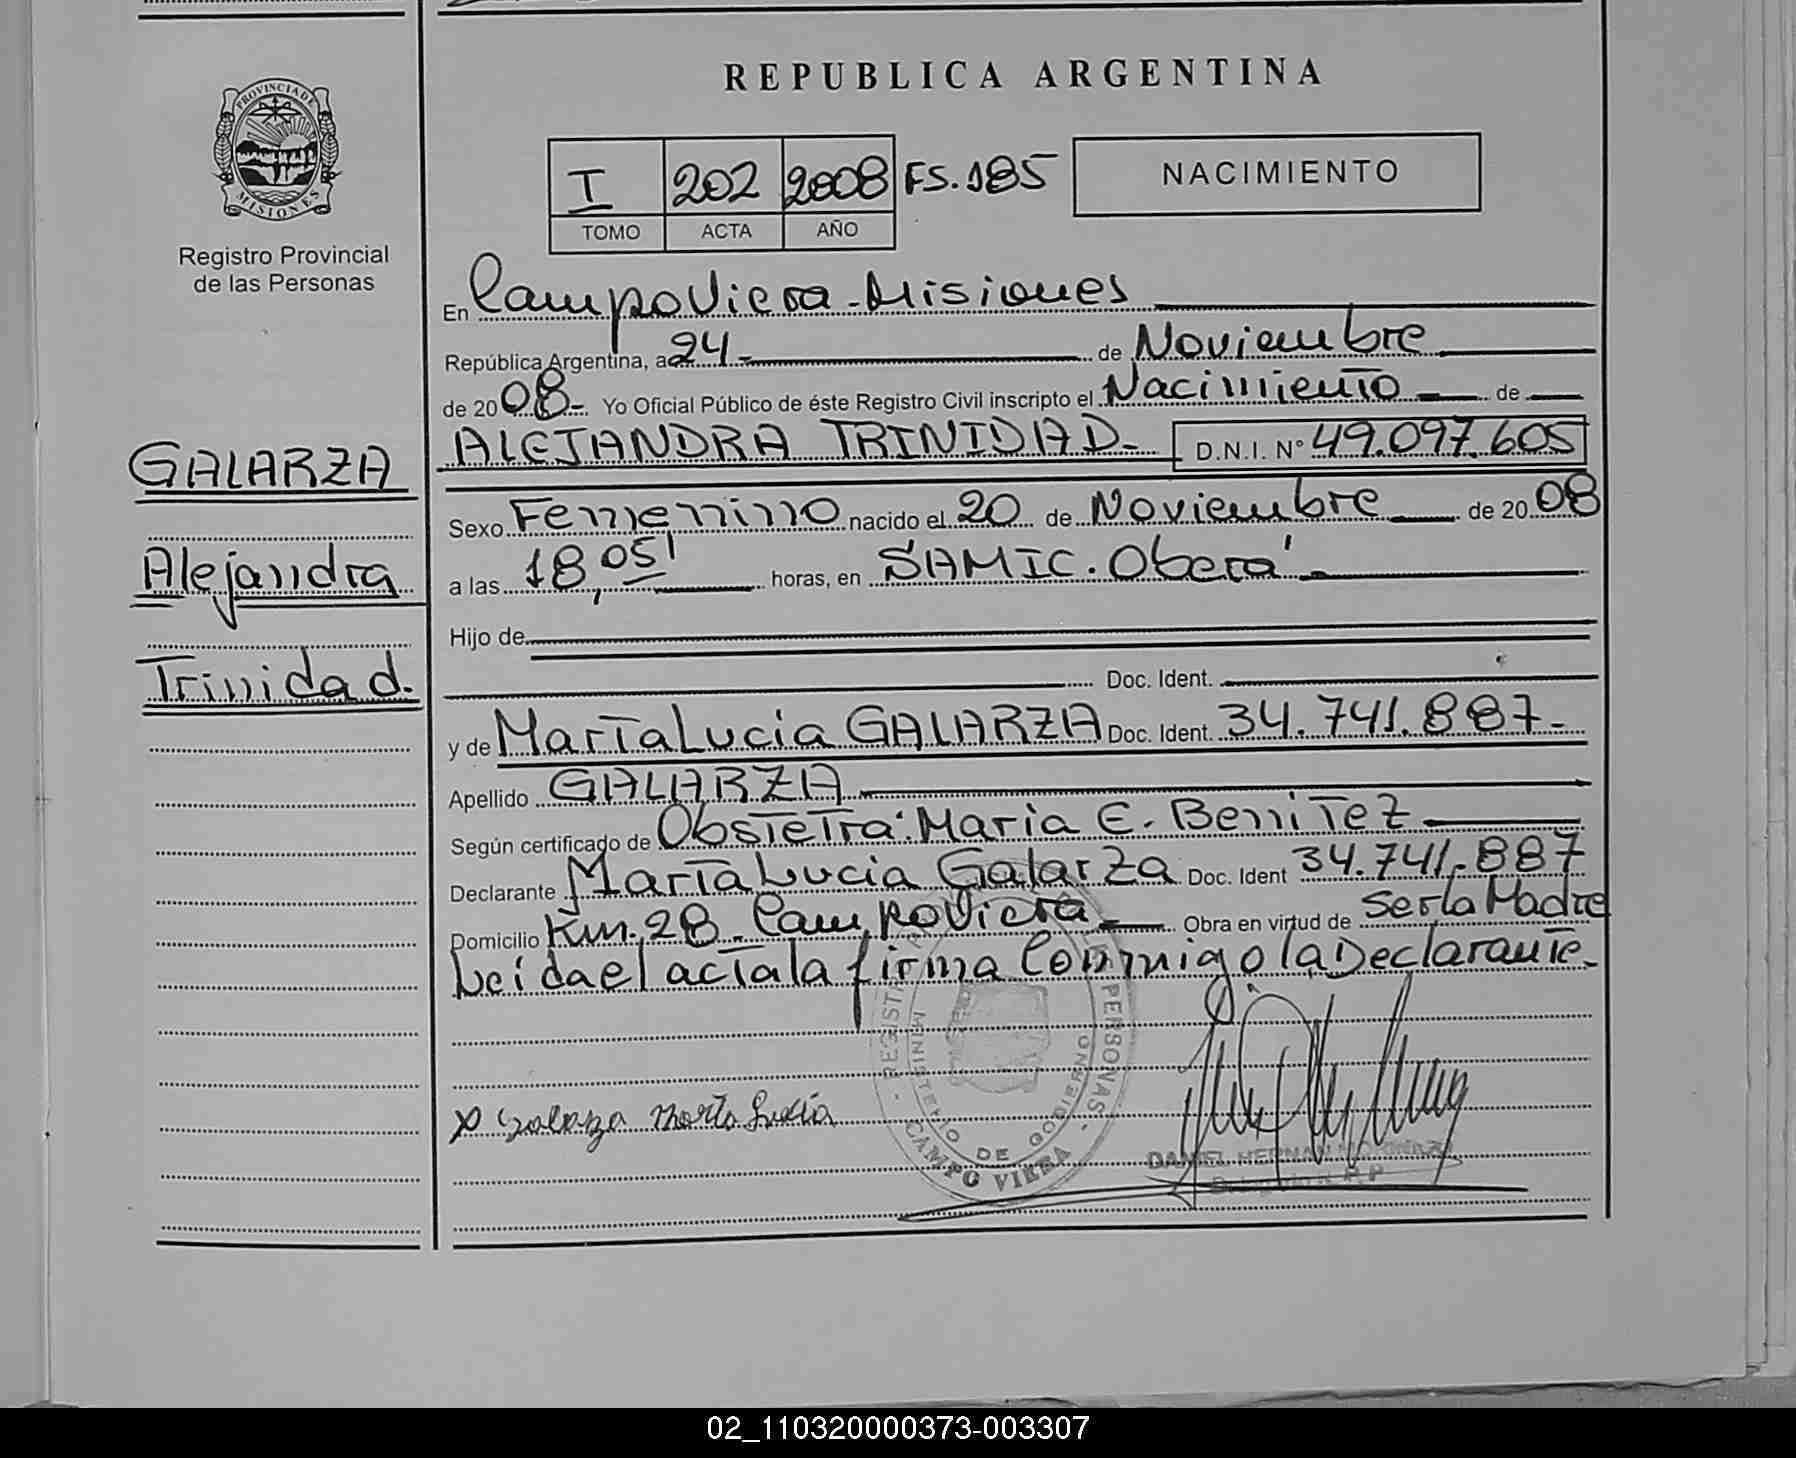 REPUBLICA ARGENTINA
PROVINCIA DE
MISIONES
Registro Provincial
de las Personas
I 202 2008 FS.185
TOMO ACTA AÑO
NACIMIENTO
En Campo Viera - Misiones
República Argentina, a 24 - de Noviembre
de 2008 - Yo Oficial Público de éste Registro Civil inscripto el Nacimiento de
ALEJANDRA TRINIDAD - D.N.I. Nº 49.097.605
GALARZA
Alejandra
Trinidad.
Sexo Femenino nacido el 20 de Noviembre de 2008
a las 18,05' horas, en SAMIC. Oberá
Hijo de
Doc. Ident.
y de Marta Lucia GALARZA Doc. Ident. 34.741.887-
Apellido GALARZA
Según certificado de Obstetra: Maria E. Benitez
Declarante Marta Lucia Galarza Doc. Ident 34.741.887
Domicilio Km. 28 - Campo Viera Obra en virtud de ser la Madre
Leída el acta la firma Conmigo la Declarante -
REGISTRO PERSONAS
MINISTERIO DE GOBIERNO
CAMPO VIERA
x Galarza Marta Lucía
DANIEL HERNAN
02_110320000373-003307